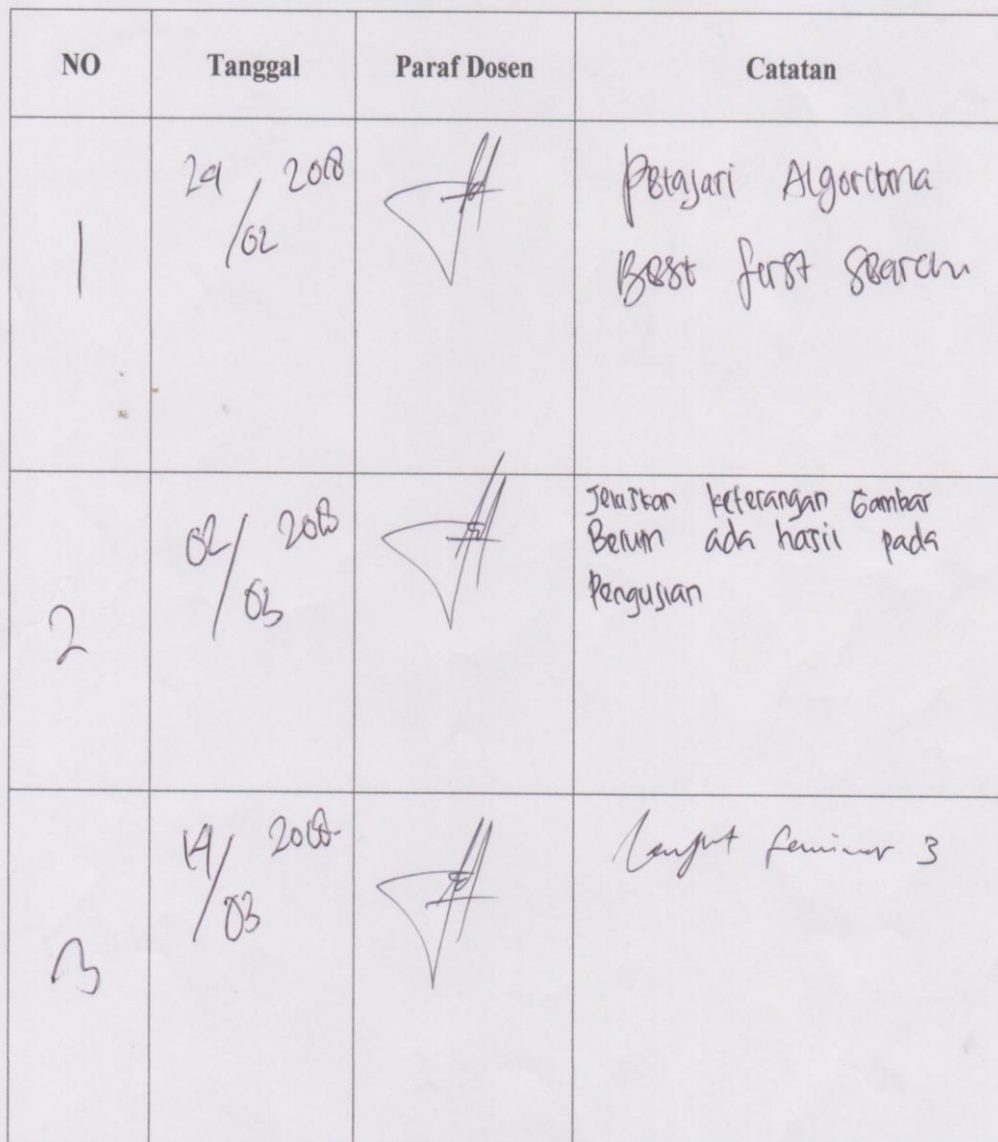 NO Tanggal Paraf Dosen Catatan
1
29/02 2018
Pelajari Algoritma
Best first Search
2
02/03 2018
Jelaskan keterangan Gambar
Belum ada hasil pada
Pengujian
3
14/03 2018
Lanjut Seminar 3